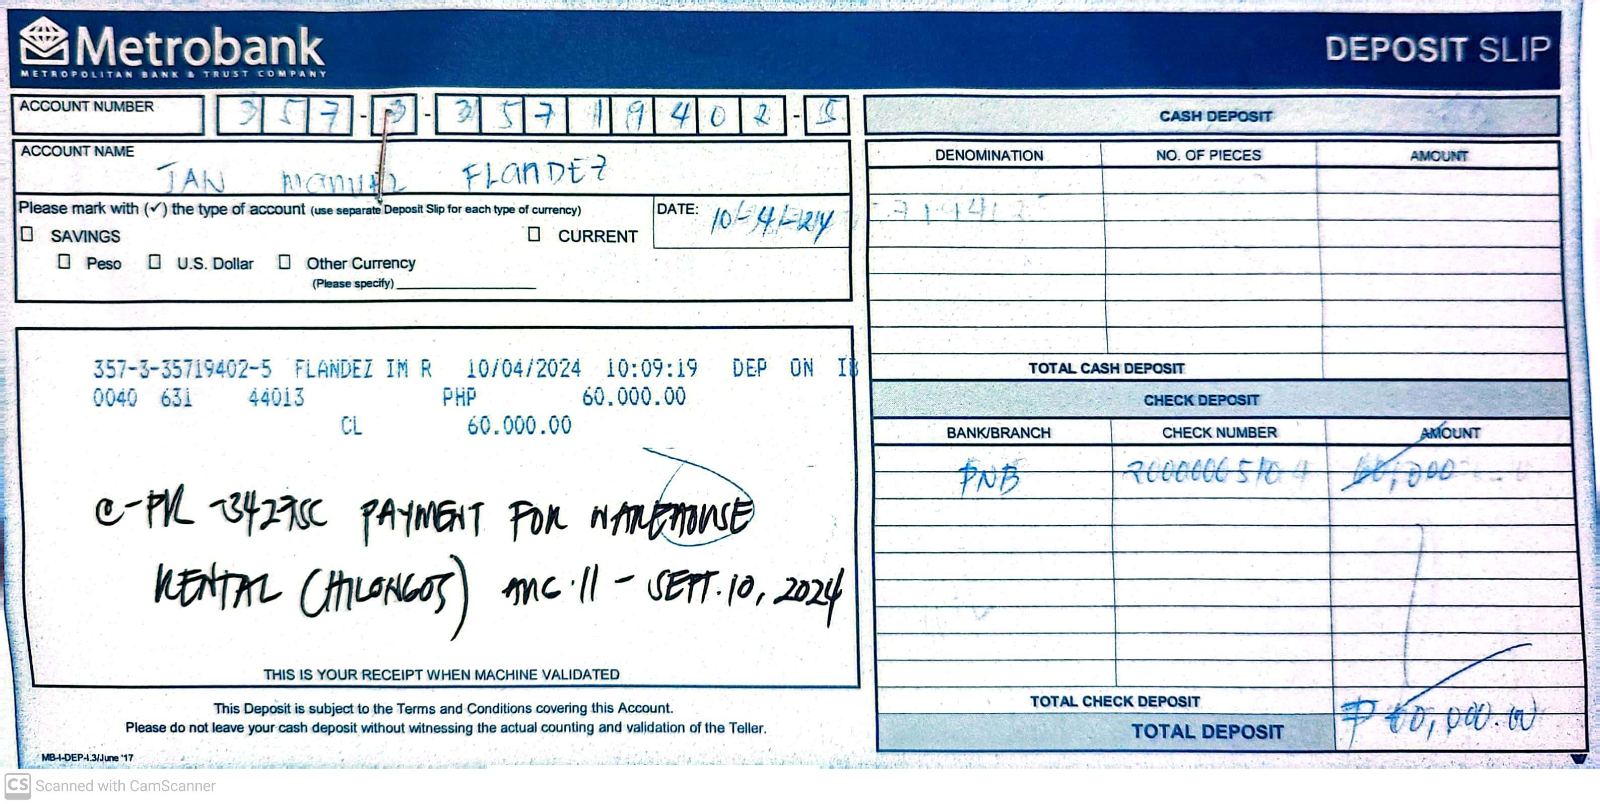 Metrobank
METROPOLITAN BANK & TRUST COMPANY
DEPOSIT SLIP
ACCOUNT NUMBER 3 5 7 - 3 - 3 5 7 1 9 4 0 2 - 5
ACCOUNT NAME
JAN MANUEL FLANDEZ
Please mark with (✓) the type of account (use separate Deposit Slip for each type of currency)
DATE: 10-4-24
SAVINGS
CURRENT
Peso U.S. Dollar Other Currency
(Please specify)
357-3-35719402-5 FLANDEZ IM R 10/04/2024 10:09:19 DEP ON IB
0040 631 44013 PHP 60.000.00
CL 60.000.00
PAYMENT FOR WAREHOUSE
RENTAL (HILONGOS) AUG. 11 - SEPT. 10, 2024
THIS IS YOUR RECEIPT WHEN MACHINE VALIDATED
This Deposit is subject to the Terms and Conditions covering this Account.
Please do not leave your cash deposit without witnessing the actual counting and validation of the Teller.
MB-I-DEP-I.3/June '17
CASH DEPOSIT
DENOMINATION NO. OF PIECES AMOUNT
TOTAL CASH DEPOSIT
CHECK DEPOSIT
BANK/BRANCH CHECK NUMBER AMOUNT
PNB 60,000
TOTAL CHECK DEPOSIT
TOTAL DEPOSIT ₱ 60,000.00
CS Scanned with CamScanner